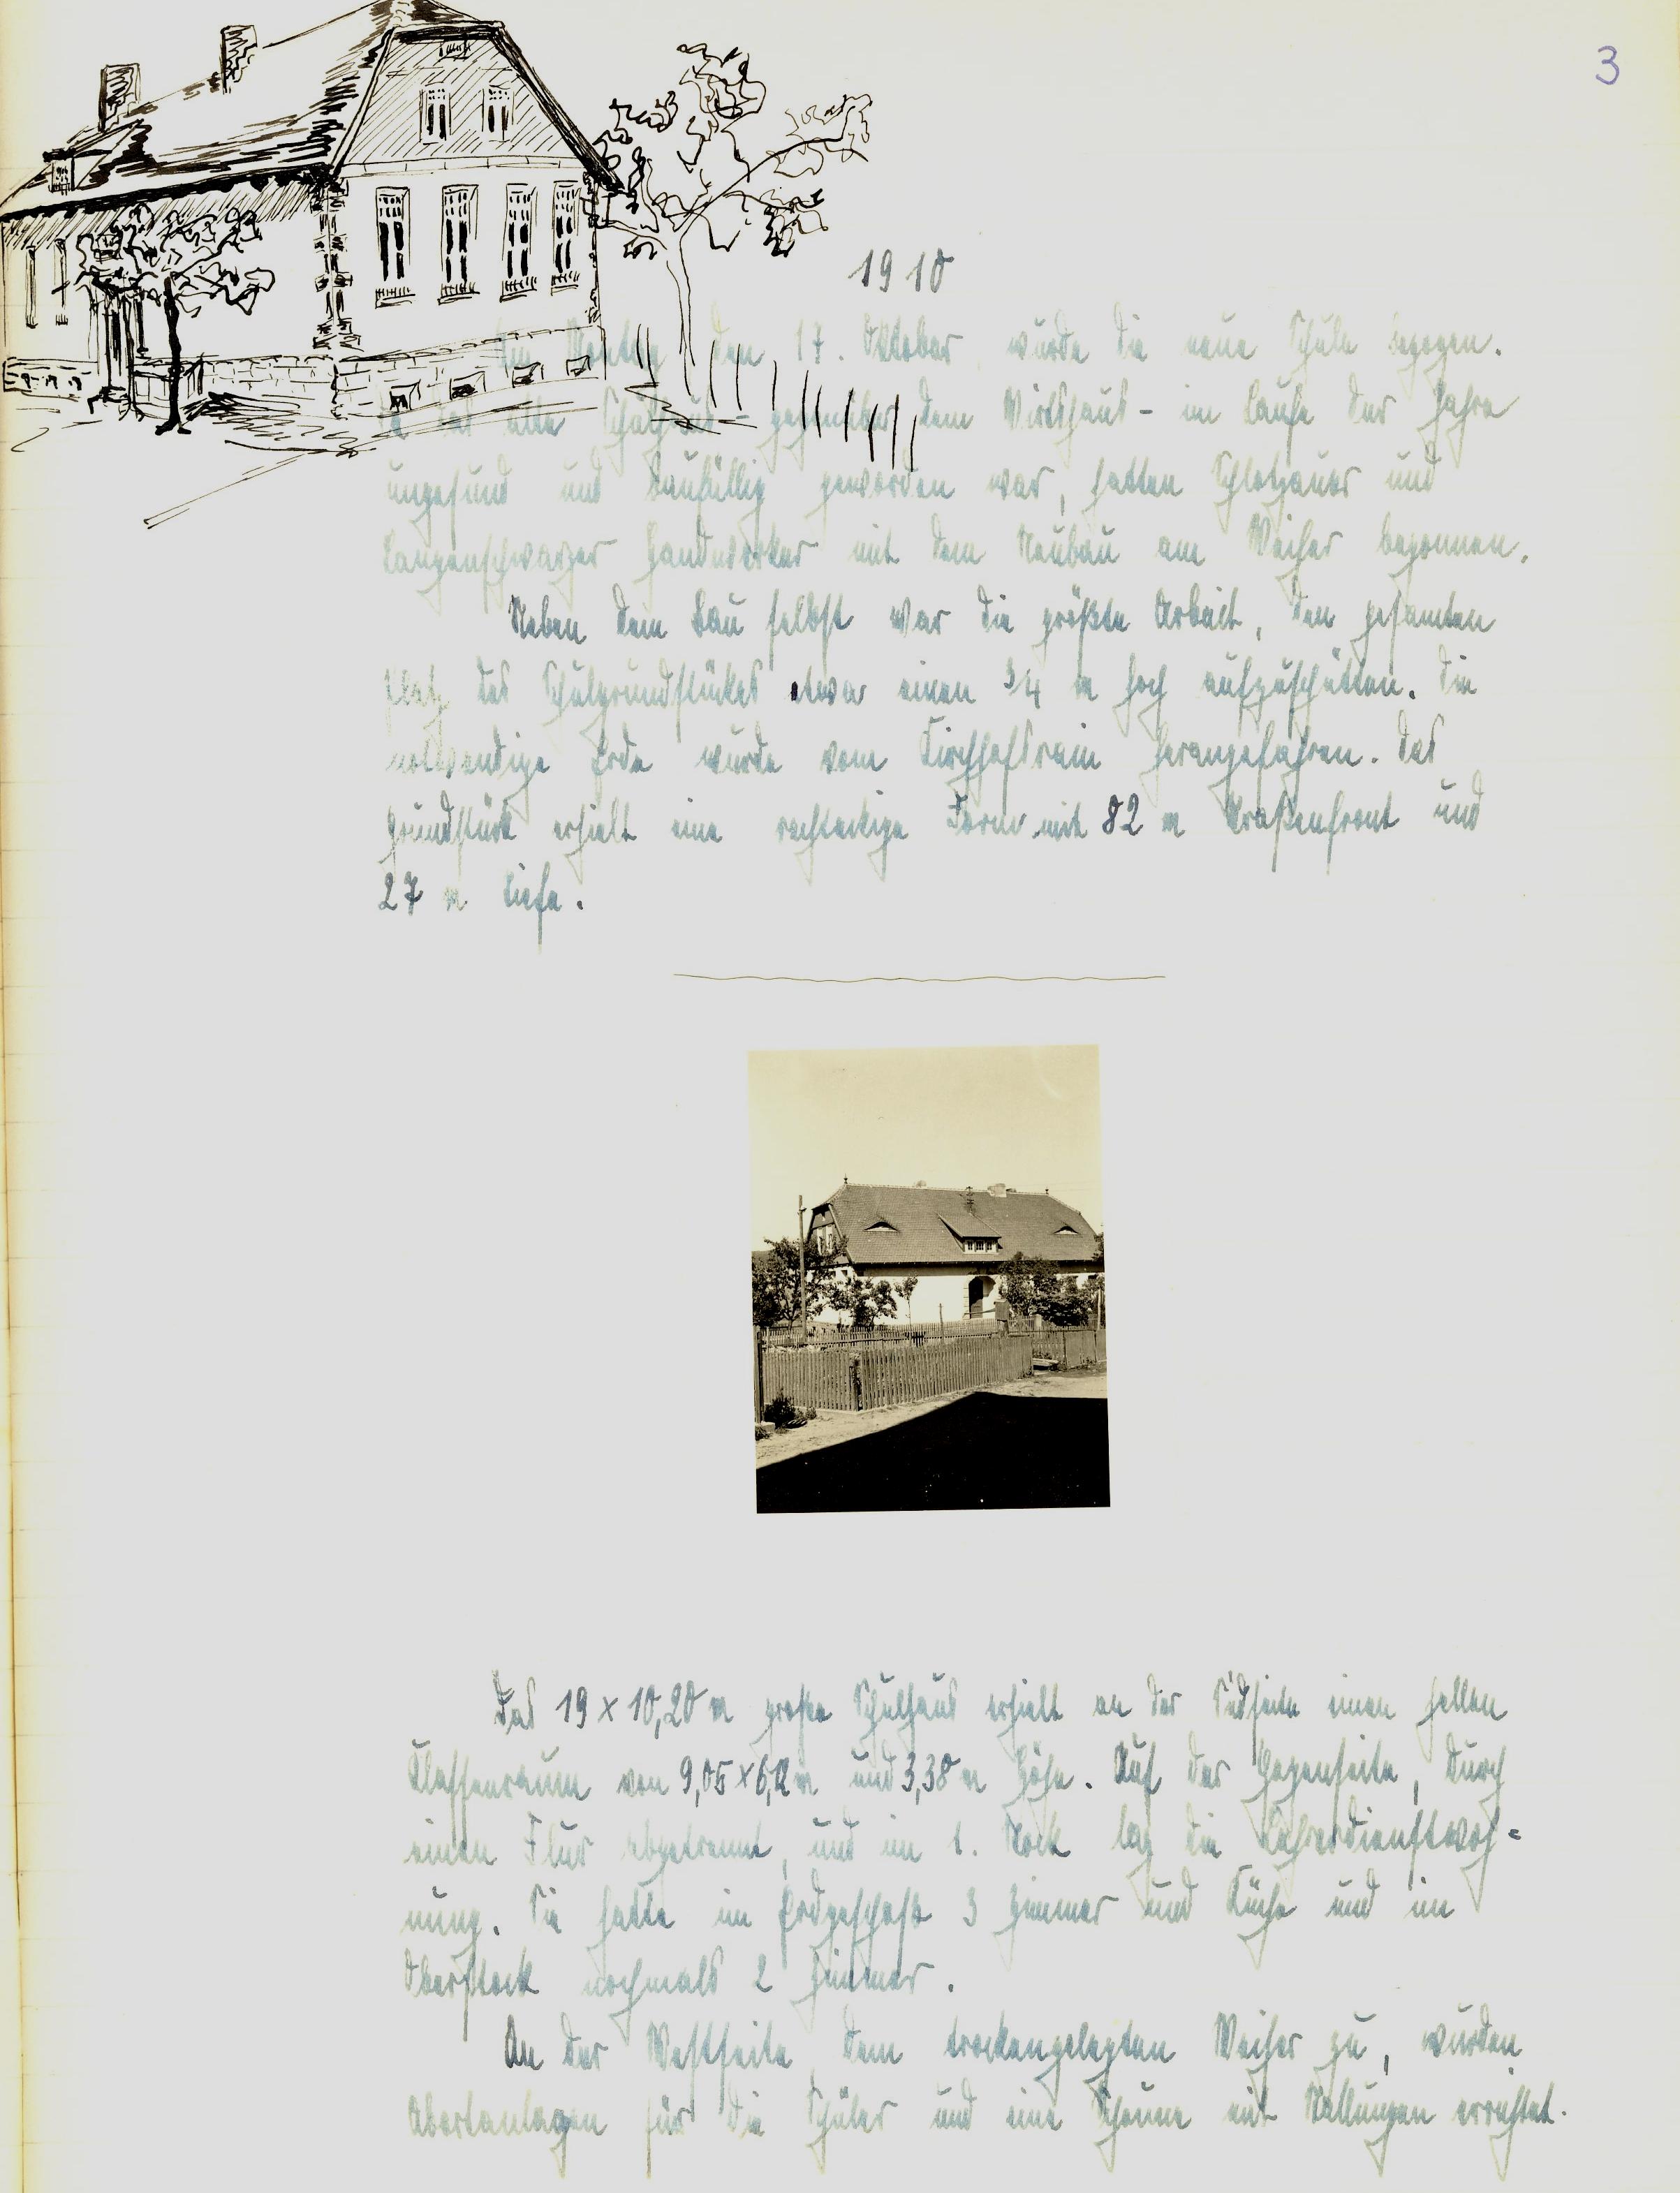 3
1910
Am Montag, den 17. Oktober, wurde die neue Schule bezogen.
Da das alte Schulhaus – gegenüber dem Wirtshaus – im Laufe der Jahre
ungesund und baufällig geworden war, hatten Schlotzauer und
Langenschwarzer Handwerker mit dem Neubau am Weiher begonnen.
Neben dem Bau selbst war die größte Arbeit, den gesamten
Platz des Schulgrundstückes etwa einen 3/4 m hoch aufzuschütten. Die
notwendige Erde wurde vom Kirchhofsrain herangefahren. Das
Grundstück erhielt eine rechteckige Form mit 82 m Straßenfront und
27 m Tiefe.
Das 19 x 10,20 m große Schulhaus erhielt an der Südseite einen hellen
Klassenraum von 9,05 x 6,12 m und 3,38 m Höhe. Auf der Gegenseite, durch
einen Flur abgetrennt, und im 1. Stock lag die Lehrerdienstwoh=
nung. Sie hatte im Erdgeschoß 3 Zimmer und Küche und im
Oberstock nochmals 2 Zimmer.
An der Westseite, dem trockengelegten Weiher zu, wurden
Abortanlagen für die Schüler und eine Scheune mit Stallungen errichtet.